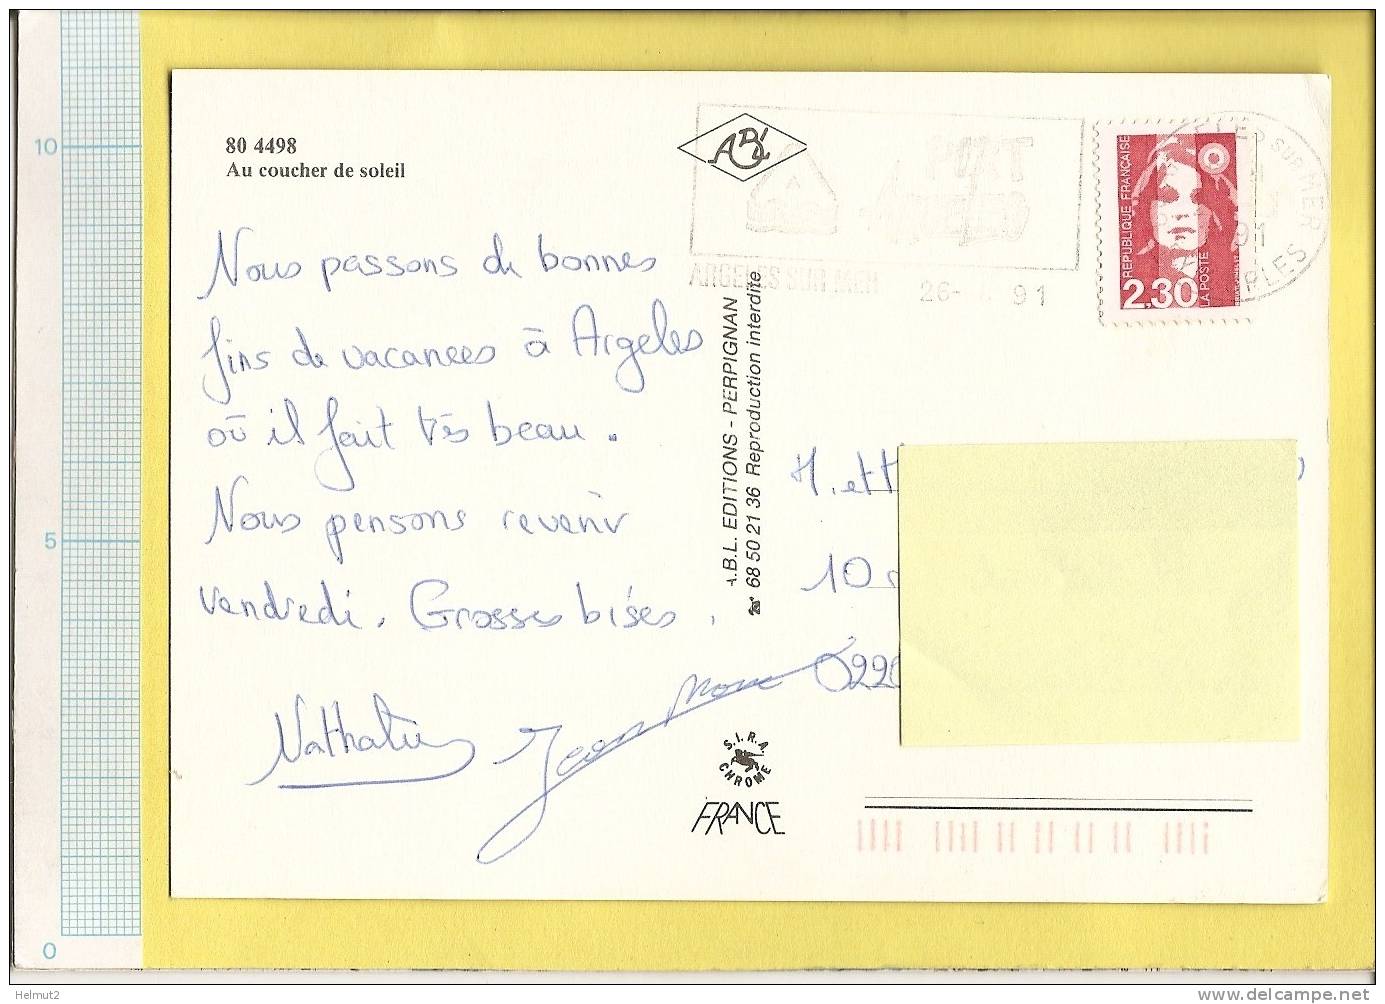 10
5
0
80 4498
Au coucher de soleil
ABL
ARGELES SUR MER 26- 91
REPUBLIQUE FRANÇAISE
2,30
LA POSTE
SUR MER
91
Nous passons de bonnes
fins de vacances à Argeles
où il fait très beau.
Nous pensons revenir
vendredi. Grosses bises.
Nathalie Jean Marc
A.B.L. EDITIONS - PERPIGNAN
☎ 68 50 21 36 Reproduction interdite
M. et M
10 r
0220
S.I.R.A.
CHROME
FRANCE
Helmut2
www.delcampe.net